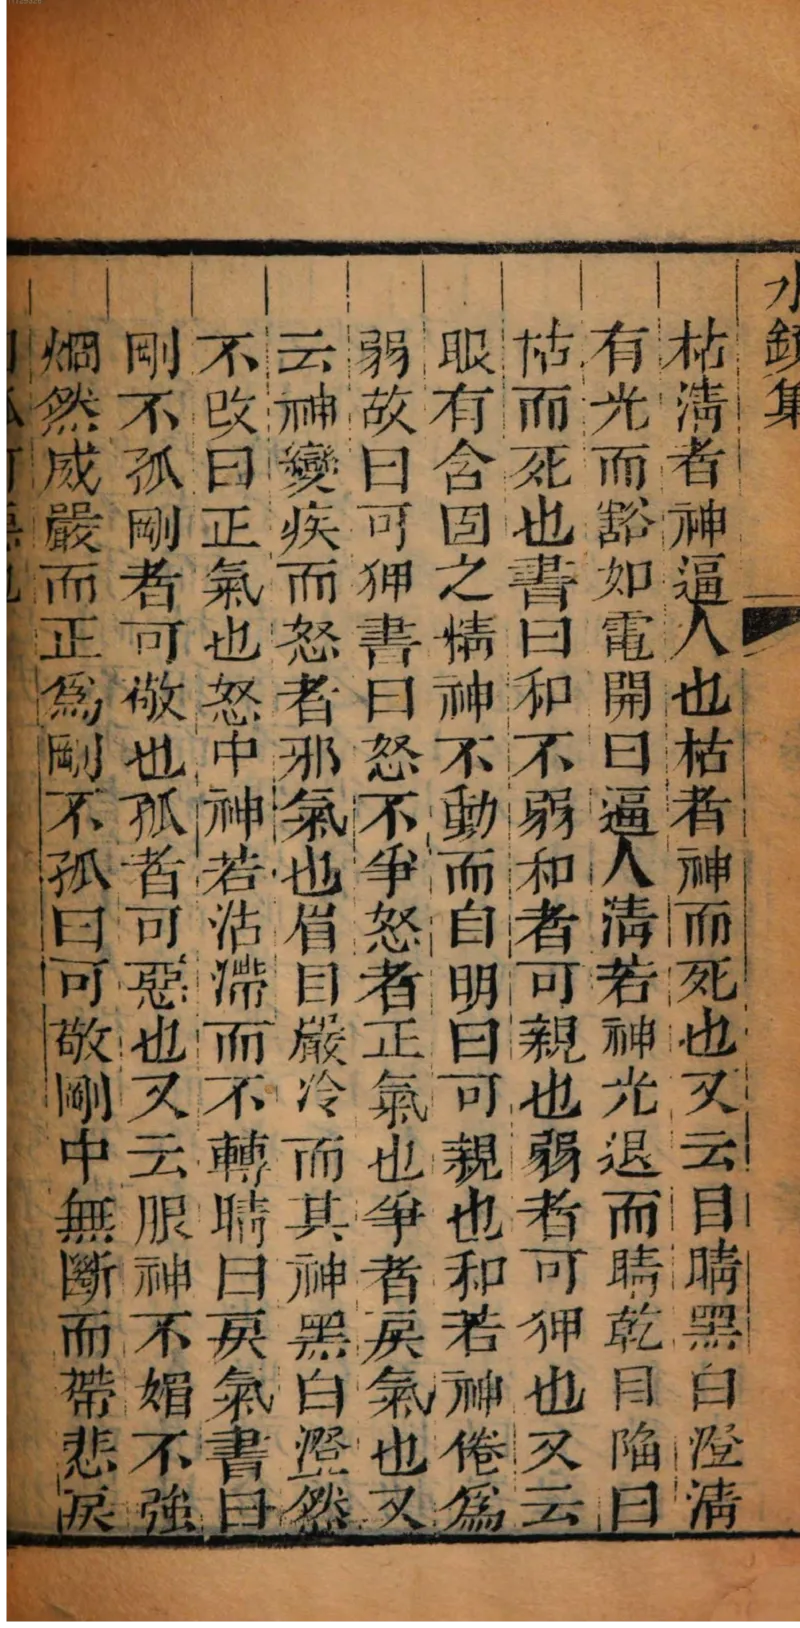 水鏡集
枯淸者神逼人也枯者神而死也又云目睛黑白澄淸
有光而豁如電開曰逼人淸若神光退而睛乾目陷曰
怙而死也書曰和不弱和者可親也弱者可狎也又云
眼有含固之情神不動而自明曰可親也和若神倦爲
弱故曰可狎書曰怒不爭怒者正氣也爭者戾氣也又
云神變疾而怒者邪氣也眉目嚴冷而其神黑白澄然
不改曰正氣也怒中神若沾滯而不轉睛曰戾氣書曰
剛不孤剛者可敬也孤者可惡也又云眼神不媚不強
烱然威嚴而正爲剛不孤曰可敬剛中無斷而帶悲淚